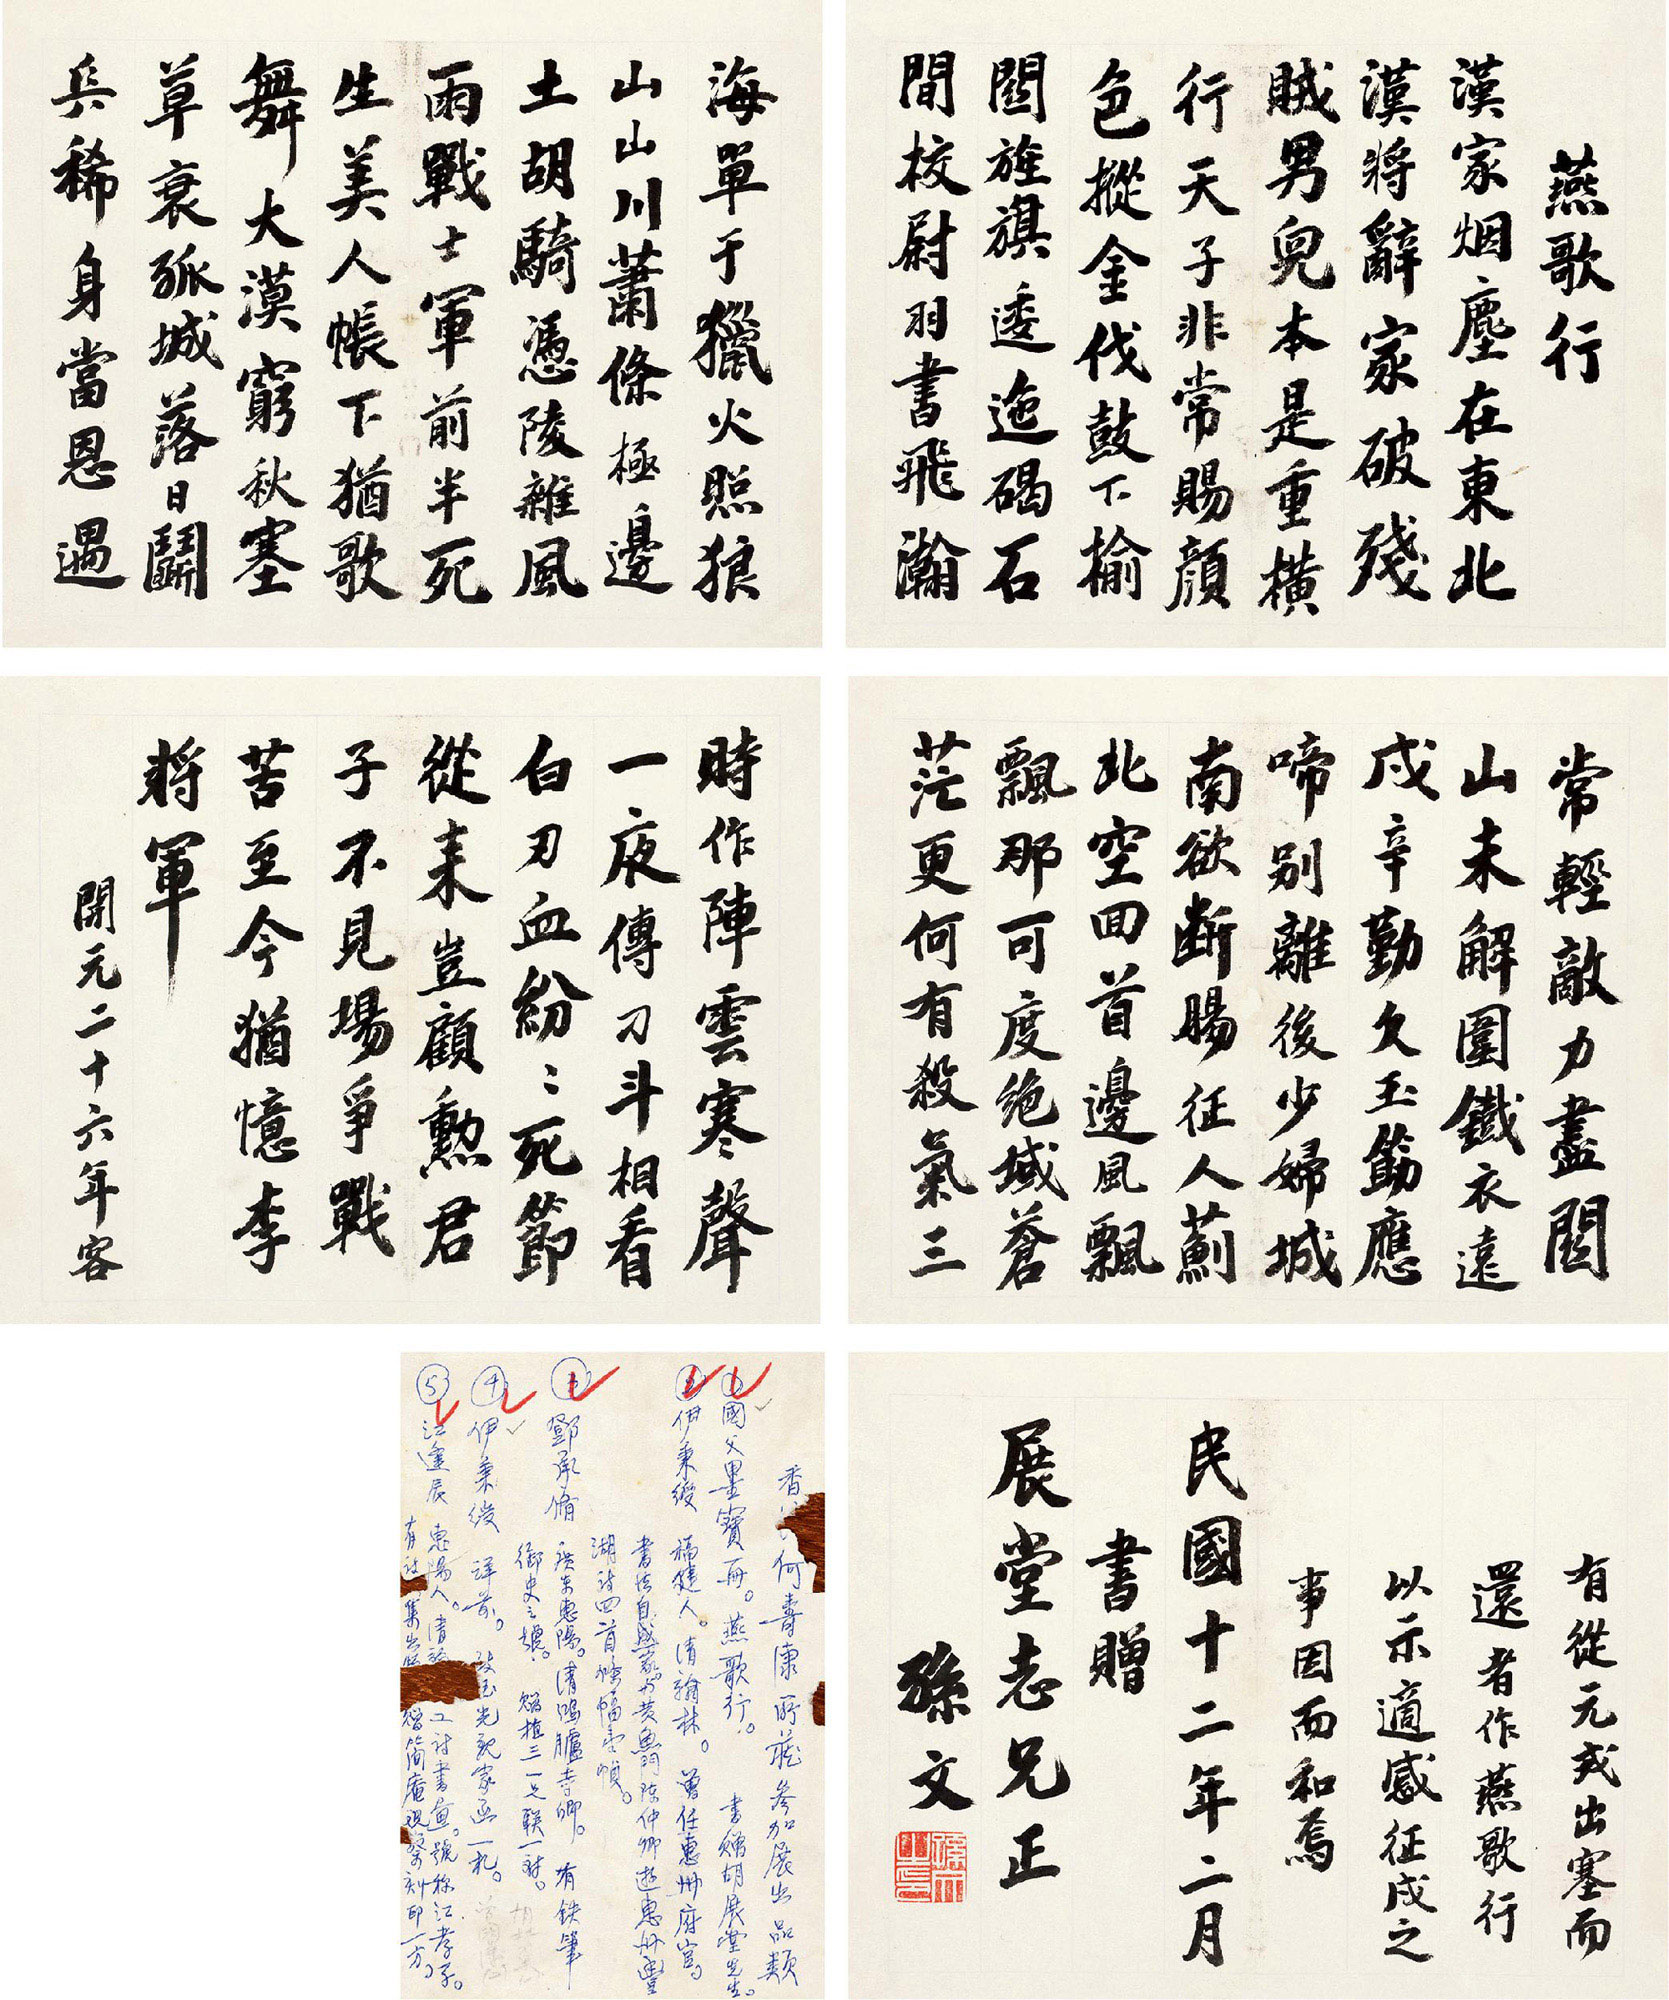 燕歌行
漢家烟塵在東北
漢將辭家破殘
賊男兒本是重橫
行天子非常賜顏
色摐金伐鼓下榆
関旌旗逶迤碣石
間校尉羽書飛瀚
海單于獵火照狼
山山川蕭條極邊
土胡騎憑陵雜風
雨戰士軍前半死
生美人帳下猶歌
舞大漠窮秋塞
草衰孤城落日鬬
兵稀身當恩遇
常輕敵力盡関
山未解圍鐵衣遠
戍辛勤久玉筯應
啼別離後少婦城
南欲断腸征人薊
北空回首邊風飄
飄那可度絶域蒼
茫更何有殺氣三
時作陣雲寒聲
一夜傳刁斗相看
白刃血紛〻死節
從来豈顧勲君
子不見場爭戰
苦至今猶憶李
將軍
開元二十六年客
有從元戎出塞而
還者作燕歌行
以示適感征戍之
事因而和焉
民國十二年二月
書贈
展堂志兄正
孫文
香 何壽康所藏參加展出品類
①國父墨寶冊。燕歌行。 書贈胡展堂先生。
②伊秉綬 福建人。清翰林。曾任惠州府官。
書法自成家。為黃魚門陳仲卿遊惠州豐
湖詩四首條幅壹幀。
③鄧承脩 廣東惠陽。清鴻臚寺卿。有鉄筆
御史之號。 贈植三一七联一對。
④伊秉綬 詳前。 致玉光親家函一札。
⑤江逢辰 惠陽人。清 工詩書画。號称江孝子。
有 集出 贈簡庵觀察刻印一方。